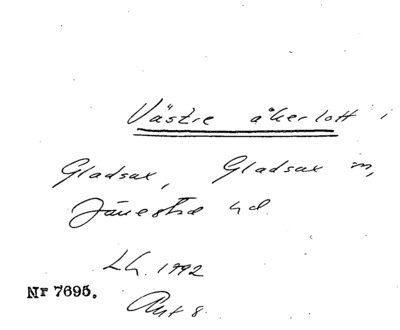 Västre åkerlott i
Gladsax, Gladsax sn,
Järrestad hd.
LG. 1992
Nr 7695.
Akt 8.